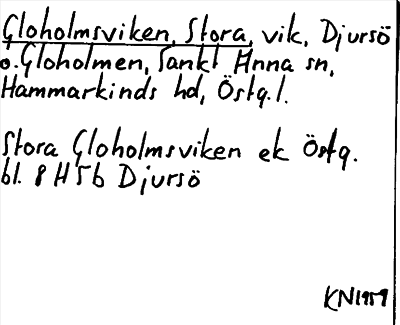 Gloholmsviken, Stora, vik, Djursö
o. Gloholmen, Sankt Anna sn,
Hammarkinds hd, Östg.l.
Stora Gloholmsviken ek Östg.
bl. 8 H 5b Djursö
KN1959